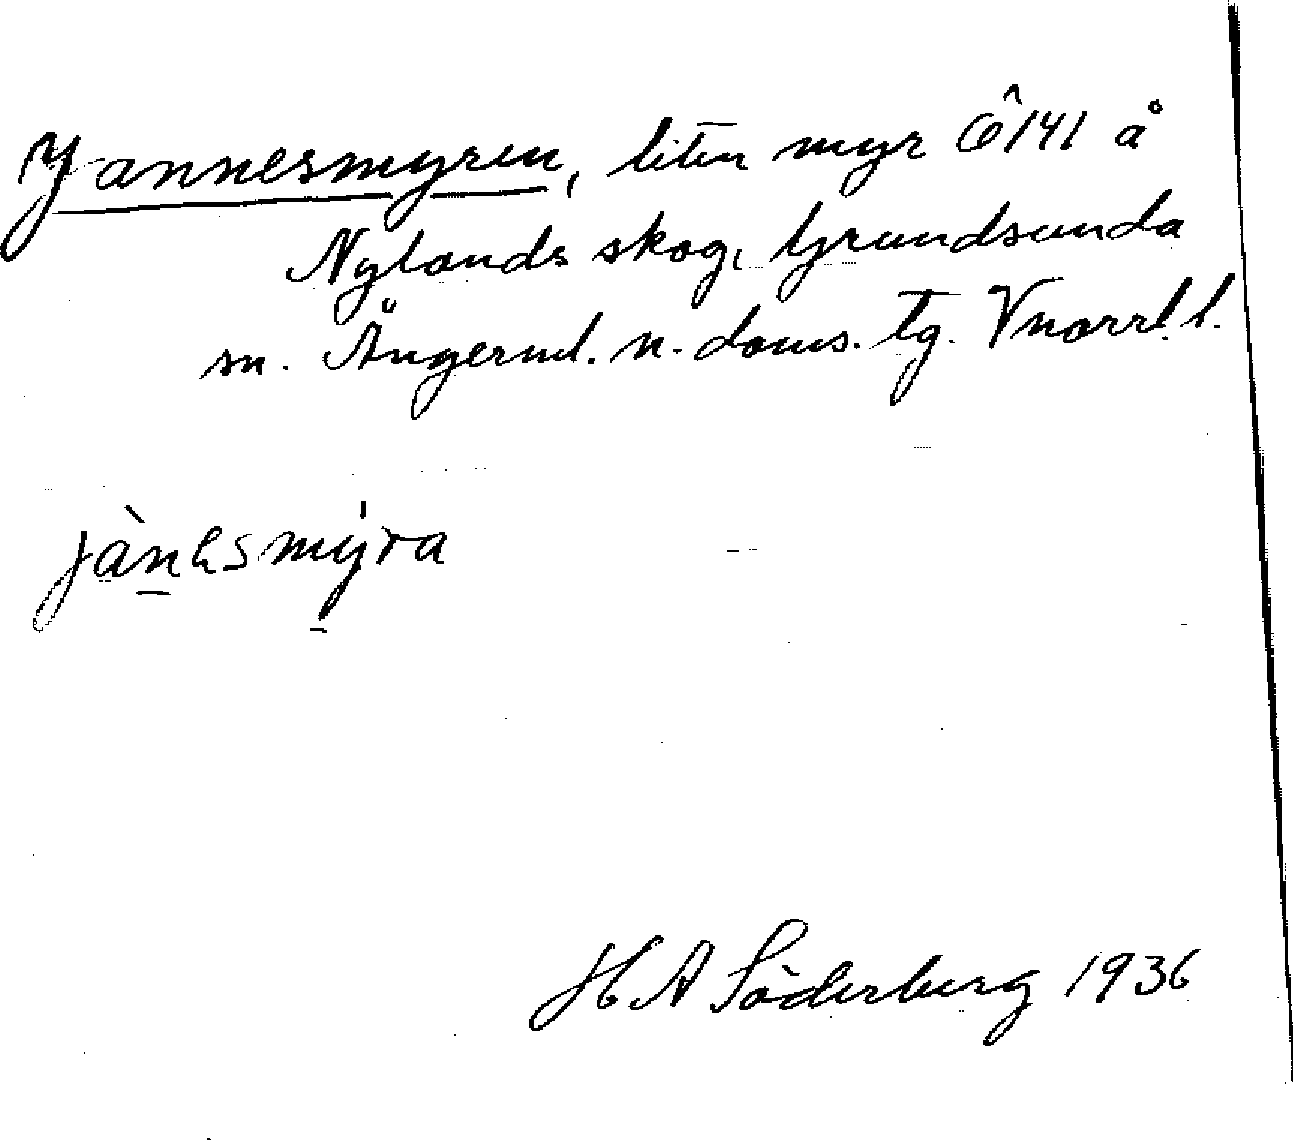 Jannesmyren, liten myr Ö141 å
Nylands skog, Grundsunda
sn. Ångerml. n. doms. tg. Vnorrl. l.
jànɛsmýra
H A Söderberg 1936